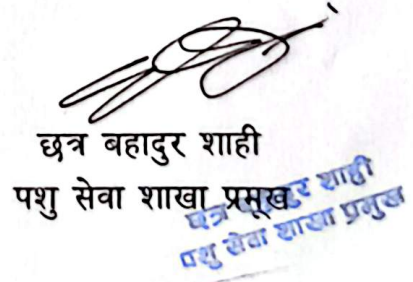 छत्र बहादुर शाही
पशु सेवा शाखा प्रमूख
छत्र बहादुर शाही
पशु सेवा शाखा प्रमुख